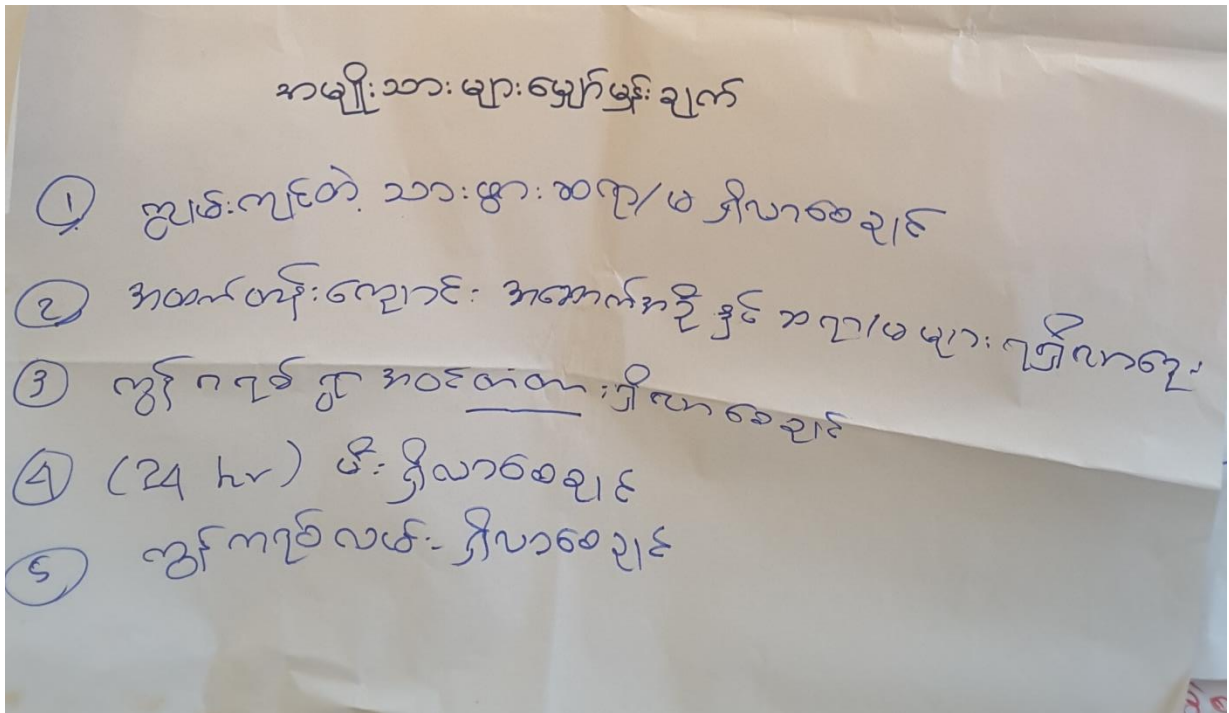 အမျိုးသားများမျှော်မှန်းချက်
① ကျွမ်းကျင်တဲ့ သားဖွားဆရာ/မ ရှိလာစေချင်
② အထက်တန်းကျောင်း အဆောက်အဦ နှင့် ဆရာ/မ များ ရှိလာရေး
③ ကျွန်းကရစ် ရွာ အဝင်တံတားရှိလာစေချင်
④ (24 hr) မီးရှိလာစေချင်
⑤ ကျွန်းကရစ်လမ်းရှိလာစေချင်